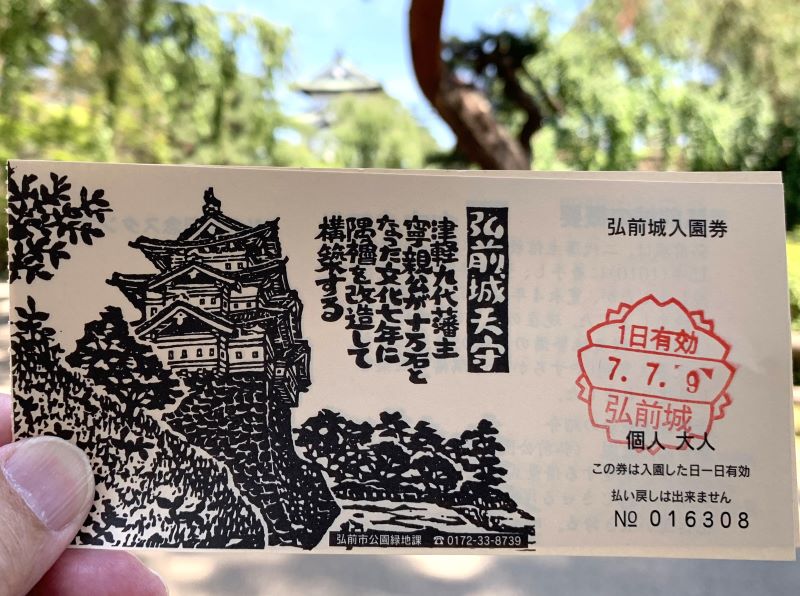 弘前城天守
津軽九代藩主
寧親公が十万石と
なった文化七年に
隅櫓を改造して
構築する
弘前市公園緑地課 ☎0172-33-8739
弘前城入園券
1日有効
7. 7. 9
弘前城
個人 大人
この券は入園した日一日有効
払い戻しは出来ません
№ 016308